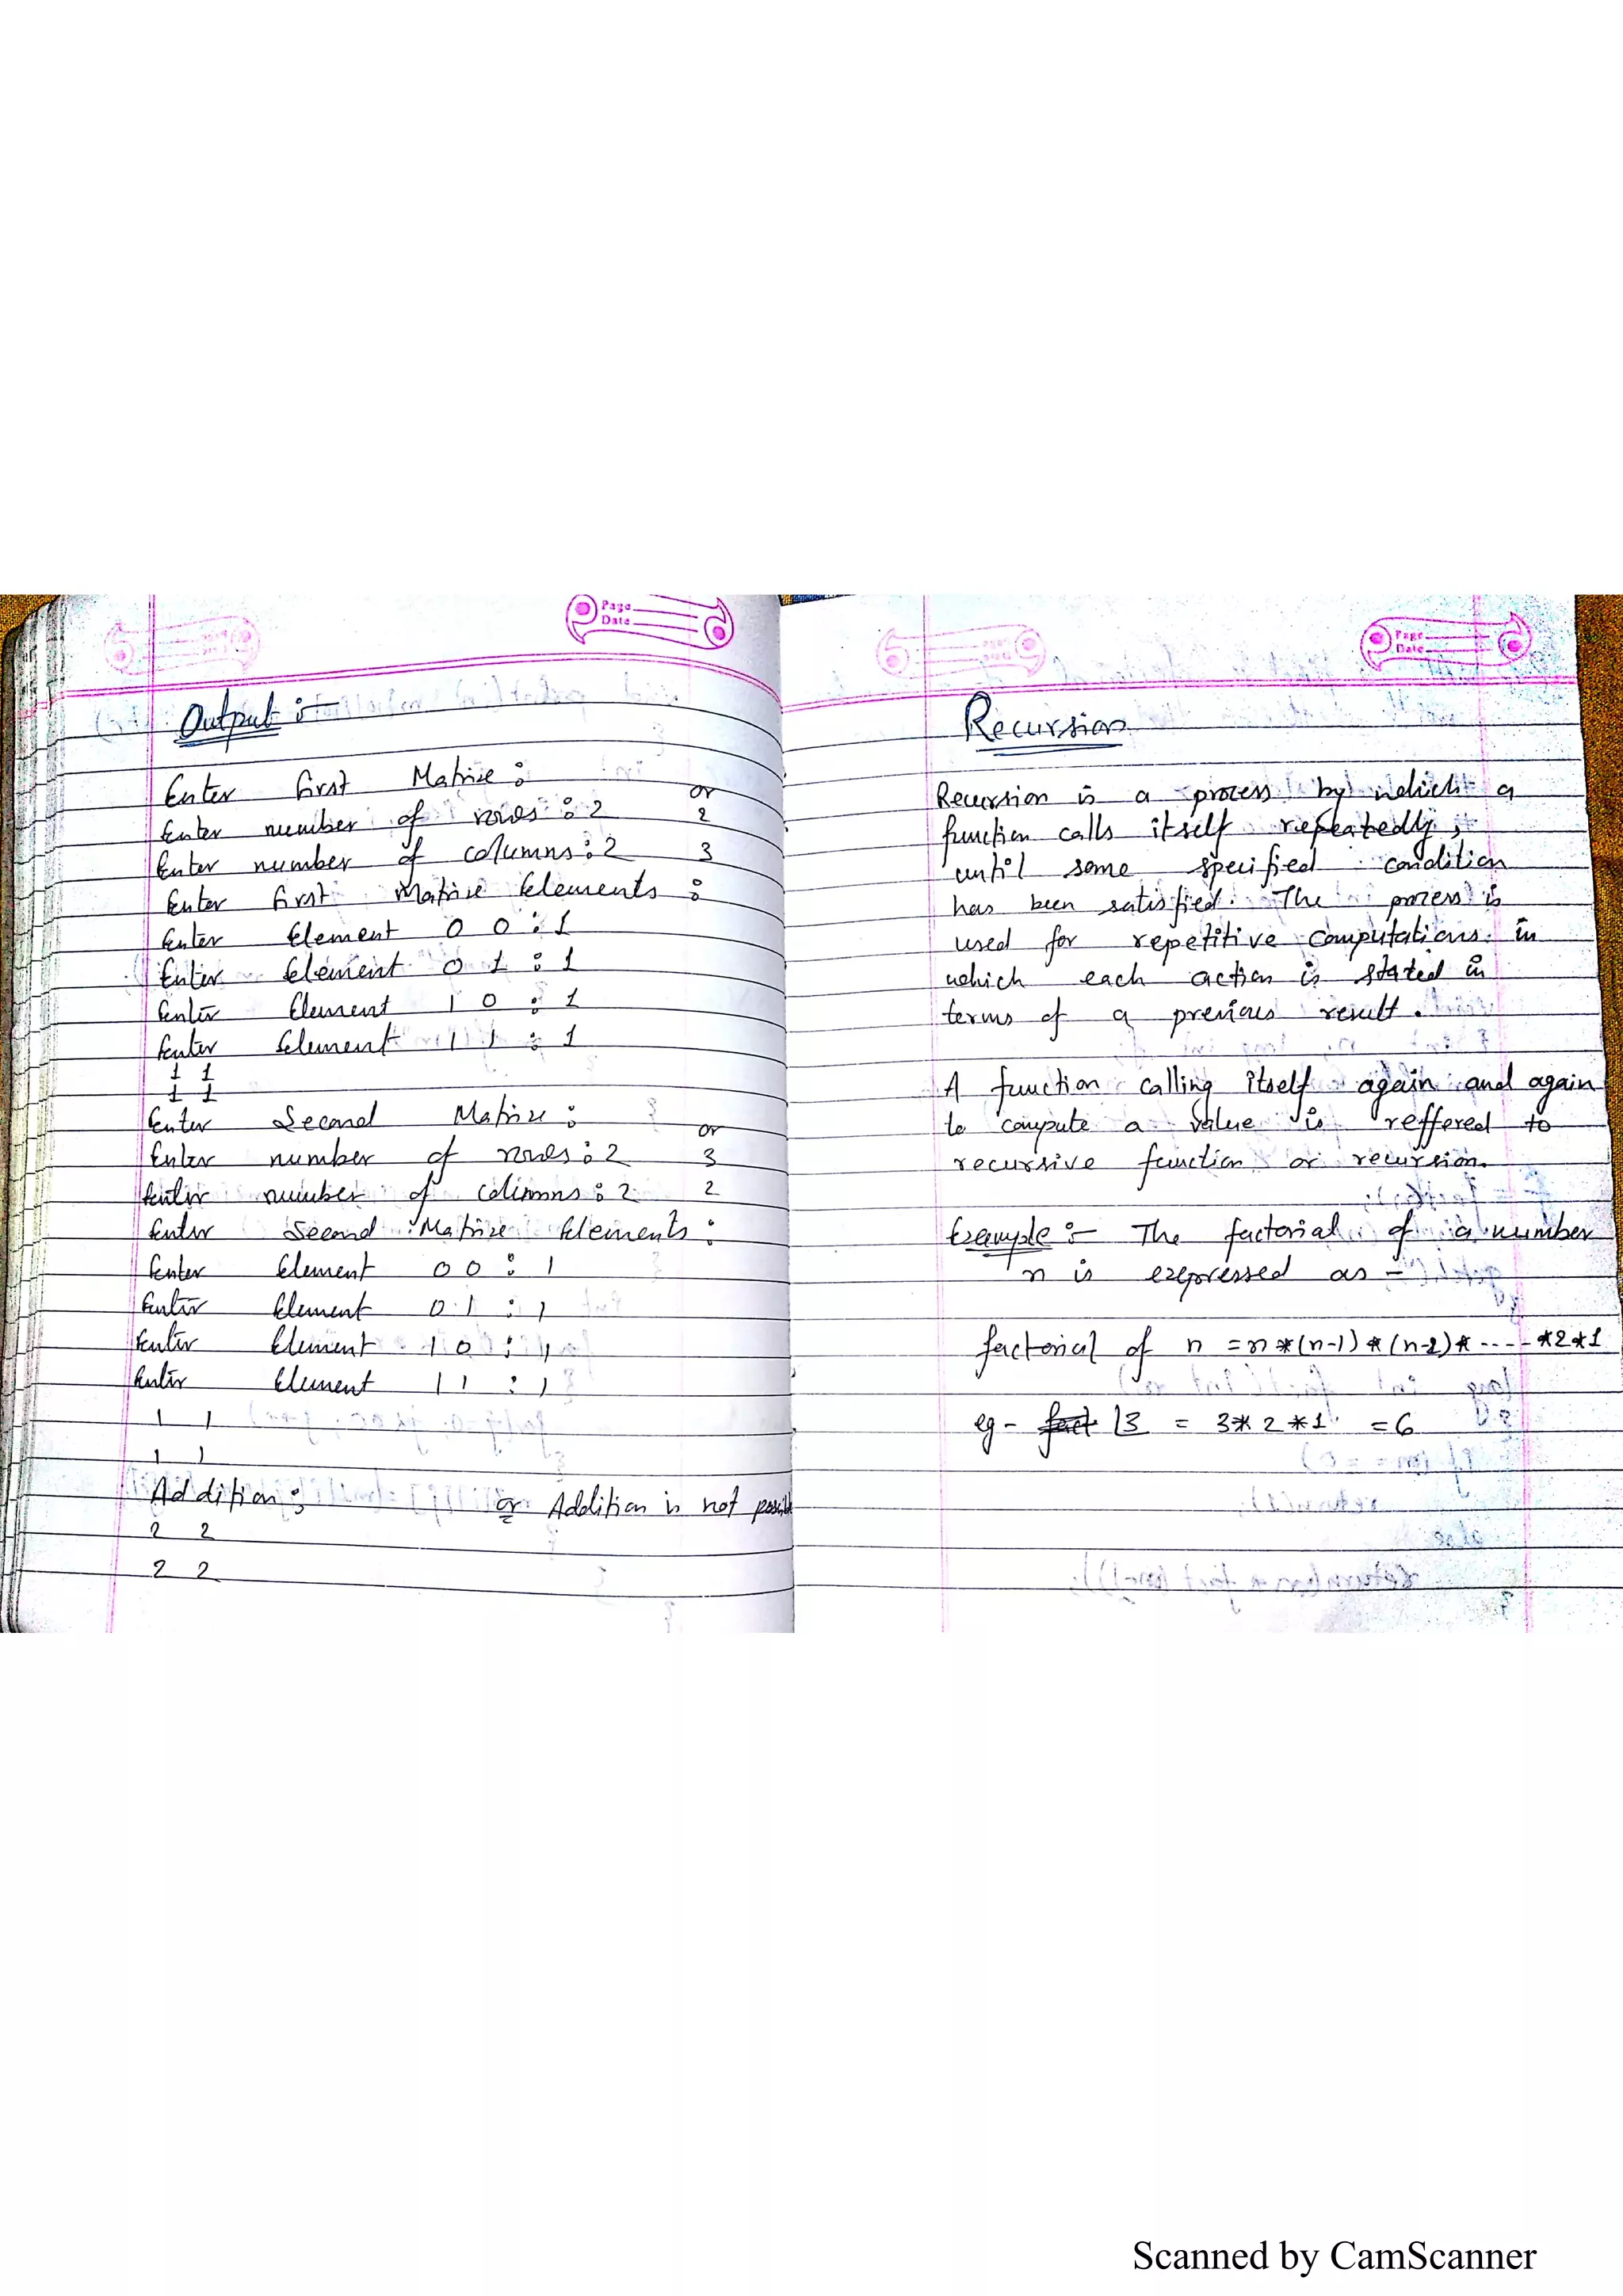 Page
Date
Output :-
Enter first Matrix :
or
Enter number of rows : 2 2
Enter number of columns : 2 3
Enter first Matrix Elements :
Enter Element 0 0 : 1
Enter Element 0 1 : 1
Enter Element 1 0 : 1
Enter Element 1 1 : 1
1 1
1 1
Enter Second Matrix :
or
Enter number of rows : 2 3
Enter number of columns : 2 2
Enter Second Matrix Elements :
Enter Element 0 0 : 1
Enter Element 0 1 : 1
Enter Element 1 0 : 1
Enter Element 1 1 : 1
1 1
1 1
Addition : or Addition is not possible
2 2
2 2
Page
Date
Recursion
Recursion is a process by which a
function calls itself repeatedly,
until some specified condition
has been satisfied. The process is
used for repetitive computations in
which each action is stated in
terms of a previous result.
A function calling itself again and again
to compute a value is reffered to
recursive function or recursion.
Example :- The factorial of a number
n is expressed as -
factorial of n = n*(n-1)*(n-2)*-----*2*1
eg - 3 = 3*2*1 = 6
Scanned by CamScanner